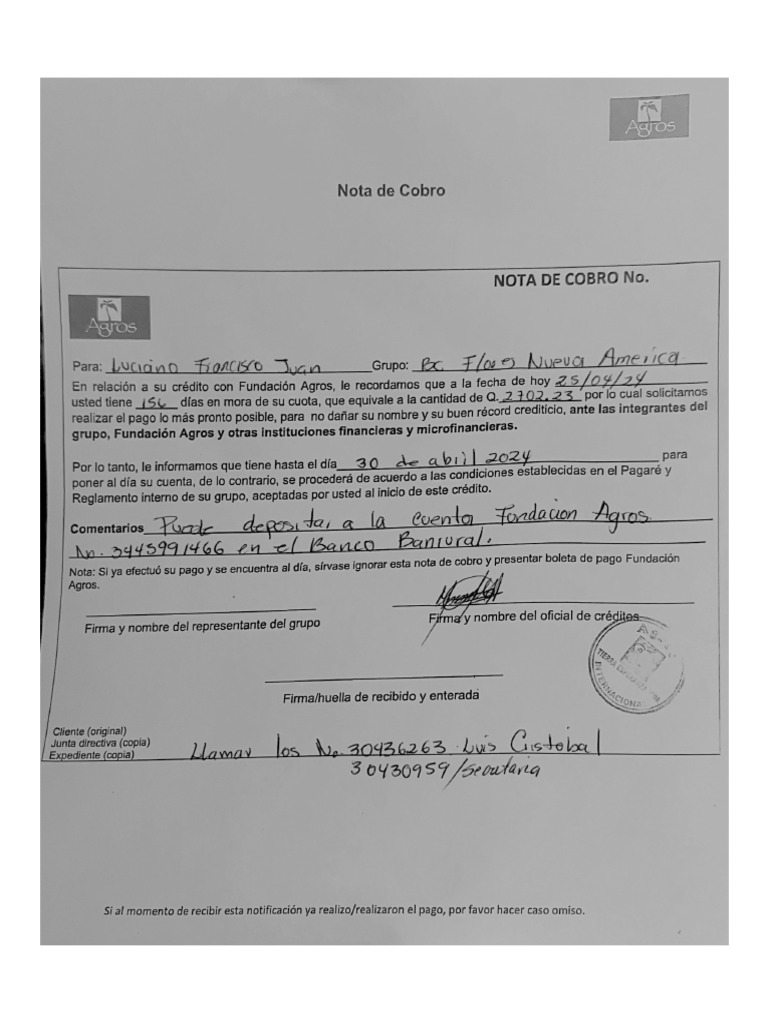 Agros
Nota de Cobro
NOTA DE COBRO No.
Agros
Para: Luciano Francisco Juan Grupo: Bc. Flores Nueva America
En relación a su crédito con Fundación Agros, le recordamos que a la fecha de hoy 25/04/24
usted tiene 156 días en mora de su cuota, que equivale a la cantidad de Q. 2702.23 por lo cual solicitamos
realizar el pago lo más pronto posible, para no dañar su nombre y su buen récord crediticio, ante las integrantes del
grupo, Fundación Agros y otras instituciones financieras y microfinancieras.
Por lo tanto, le informamos que tiene hasta el día 30 de abril 2024 para
poner al día su cuenta, de lo contrario, se procederá de acuerdo a las condiciones establecidas en el Pagaré y
Reglamento interno de su grupo, aceptadas por usted al inicio de este crédito.
Comentarios Puede depositar a la cuenta Fondacion Agros
No. 3445991466 en el Banco Banrural.
Nota: Si ya efectuó su pago y se encuentra al día, sírvase ignorar esta nota de cobro y presentar boleta de pago Fundación
Agros.
Firma y nombre del representante del grupo
Firma y nombre del oficial de créditos
Firma/huella de recibido y enterada
TIERRA
INTERNACIONAL
Cliente (original)
Junta directiva (copia)
Expediente (copia)
Llamar los No. 30436263 Luis Cristobal
30430959/Secretaria
Si al momento de recibir esta notificación ya realizo/realizaron el pago, por favor hacer caso omiso.